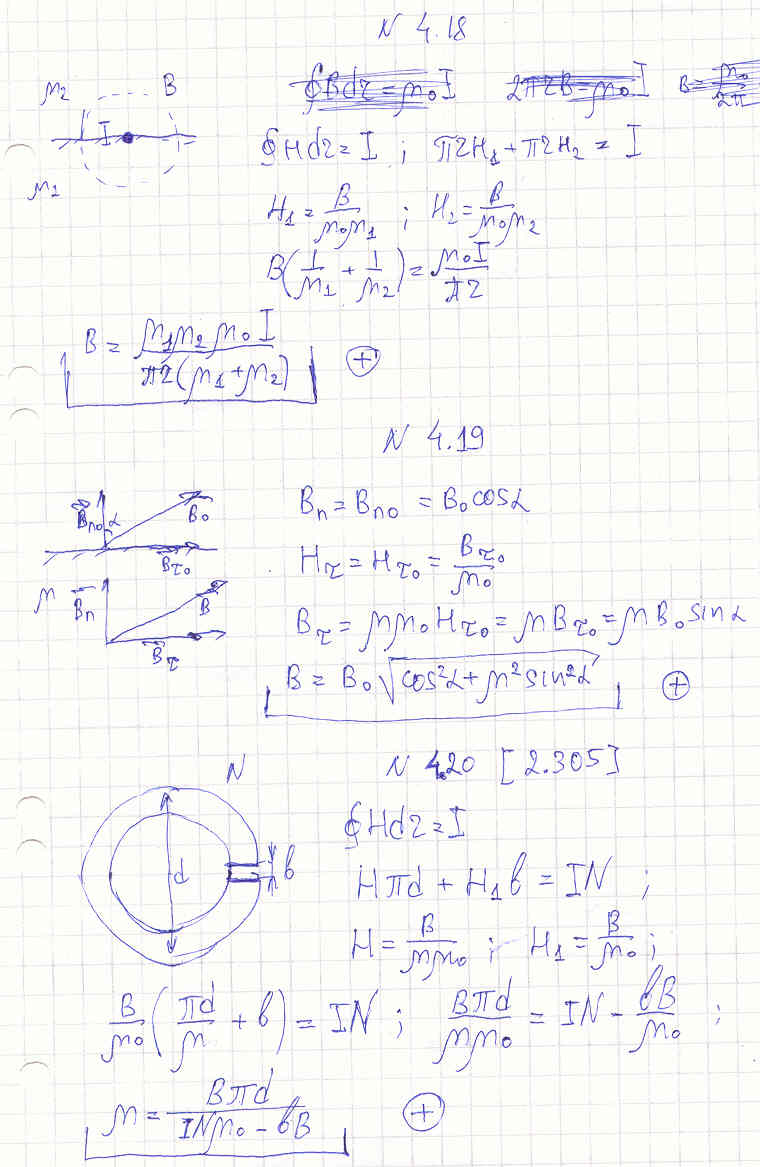 N 4.18
μ₂ B ∮Bdr = μ₀I 2πrB = μ₀I B = μ₀/2π
I
μ₁ ∮Hdr = I ; πrH₁ + πrH₂ = I
H₁ = B/μ₀μ₁ ; H₂ = B/μ₀μ₂
B(1/μ₁ + 1/μ₂) = μ₀I/πr
B = μ₁μ₂μ₀I/πr(μ₁+μ₂) (+)
N 4.19
B⃗n₀ α B₀ Bτ₀ Bn = Bn₀ = B₀cosα
Hτ = Hτ₀ = Bτ₀/μ₀
μ B⃗n B B⃗τ Bτ = μμ₀Hτ₀ = μBτ₀ = μB₀sinα
B = B₀√(cos²α + μ²sin²α) (+)
N 4.20 [2.305]
N ∮Hdr = I
d b Hπd + H₁b = IN ;
H = B/μμ₀ ; H₁ = B/μ₀ ;
B/μ₀(πd/μ + b) = IN ; Bπd/μμ₀ = IN - bB/μ₀ ;
μ = Bπd/INμ₀ - bB (+)